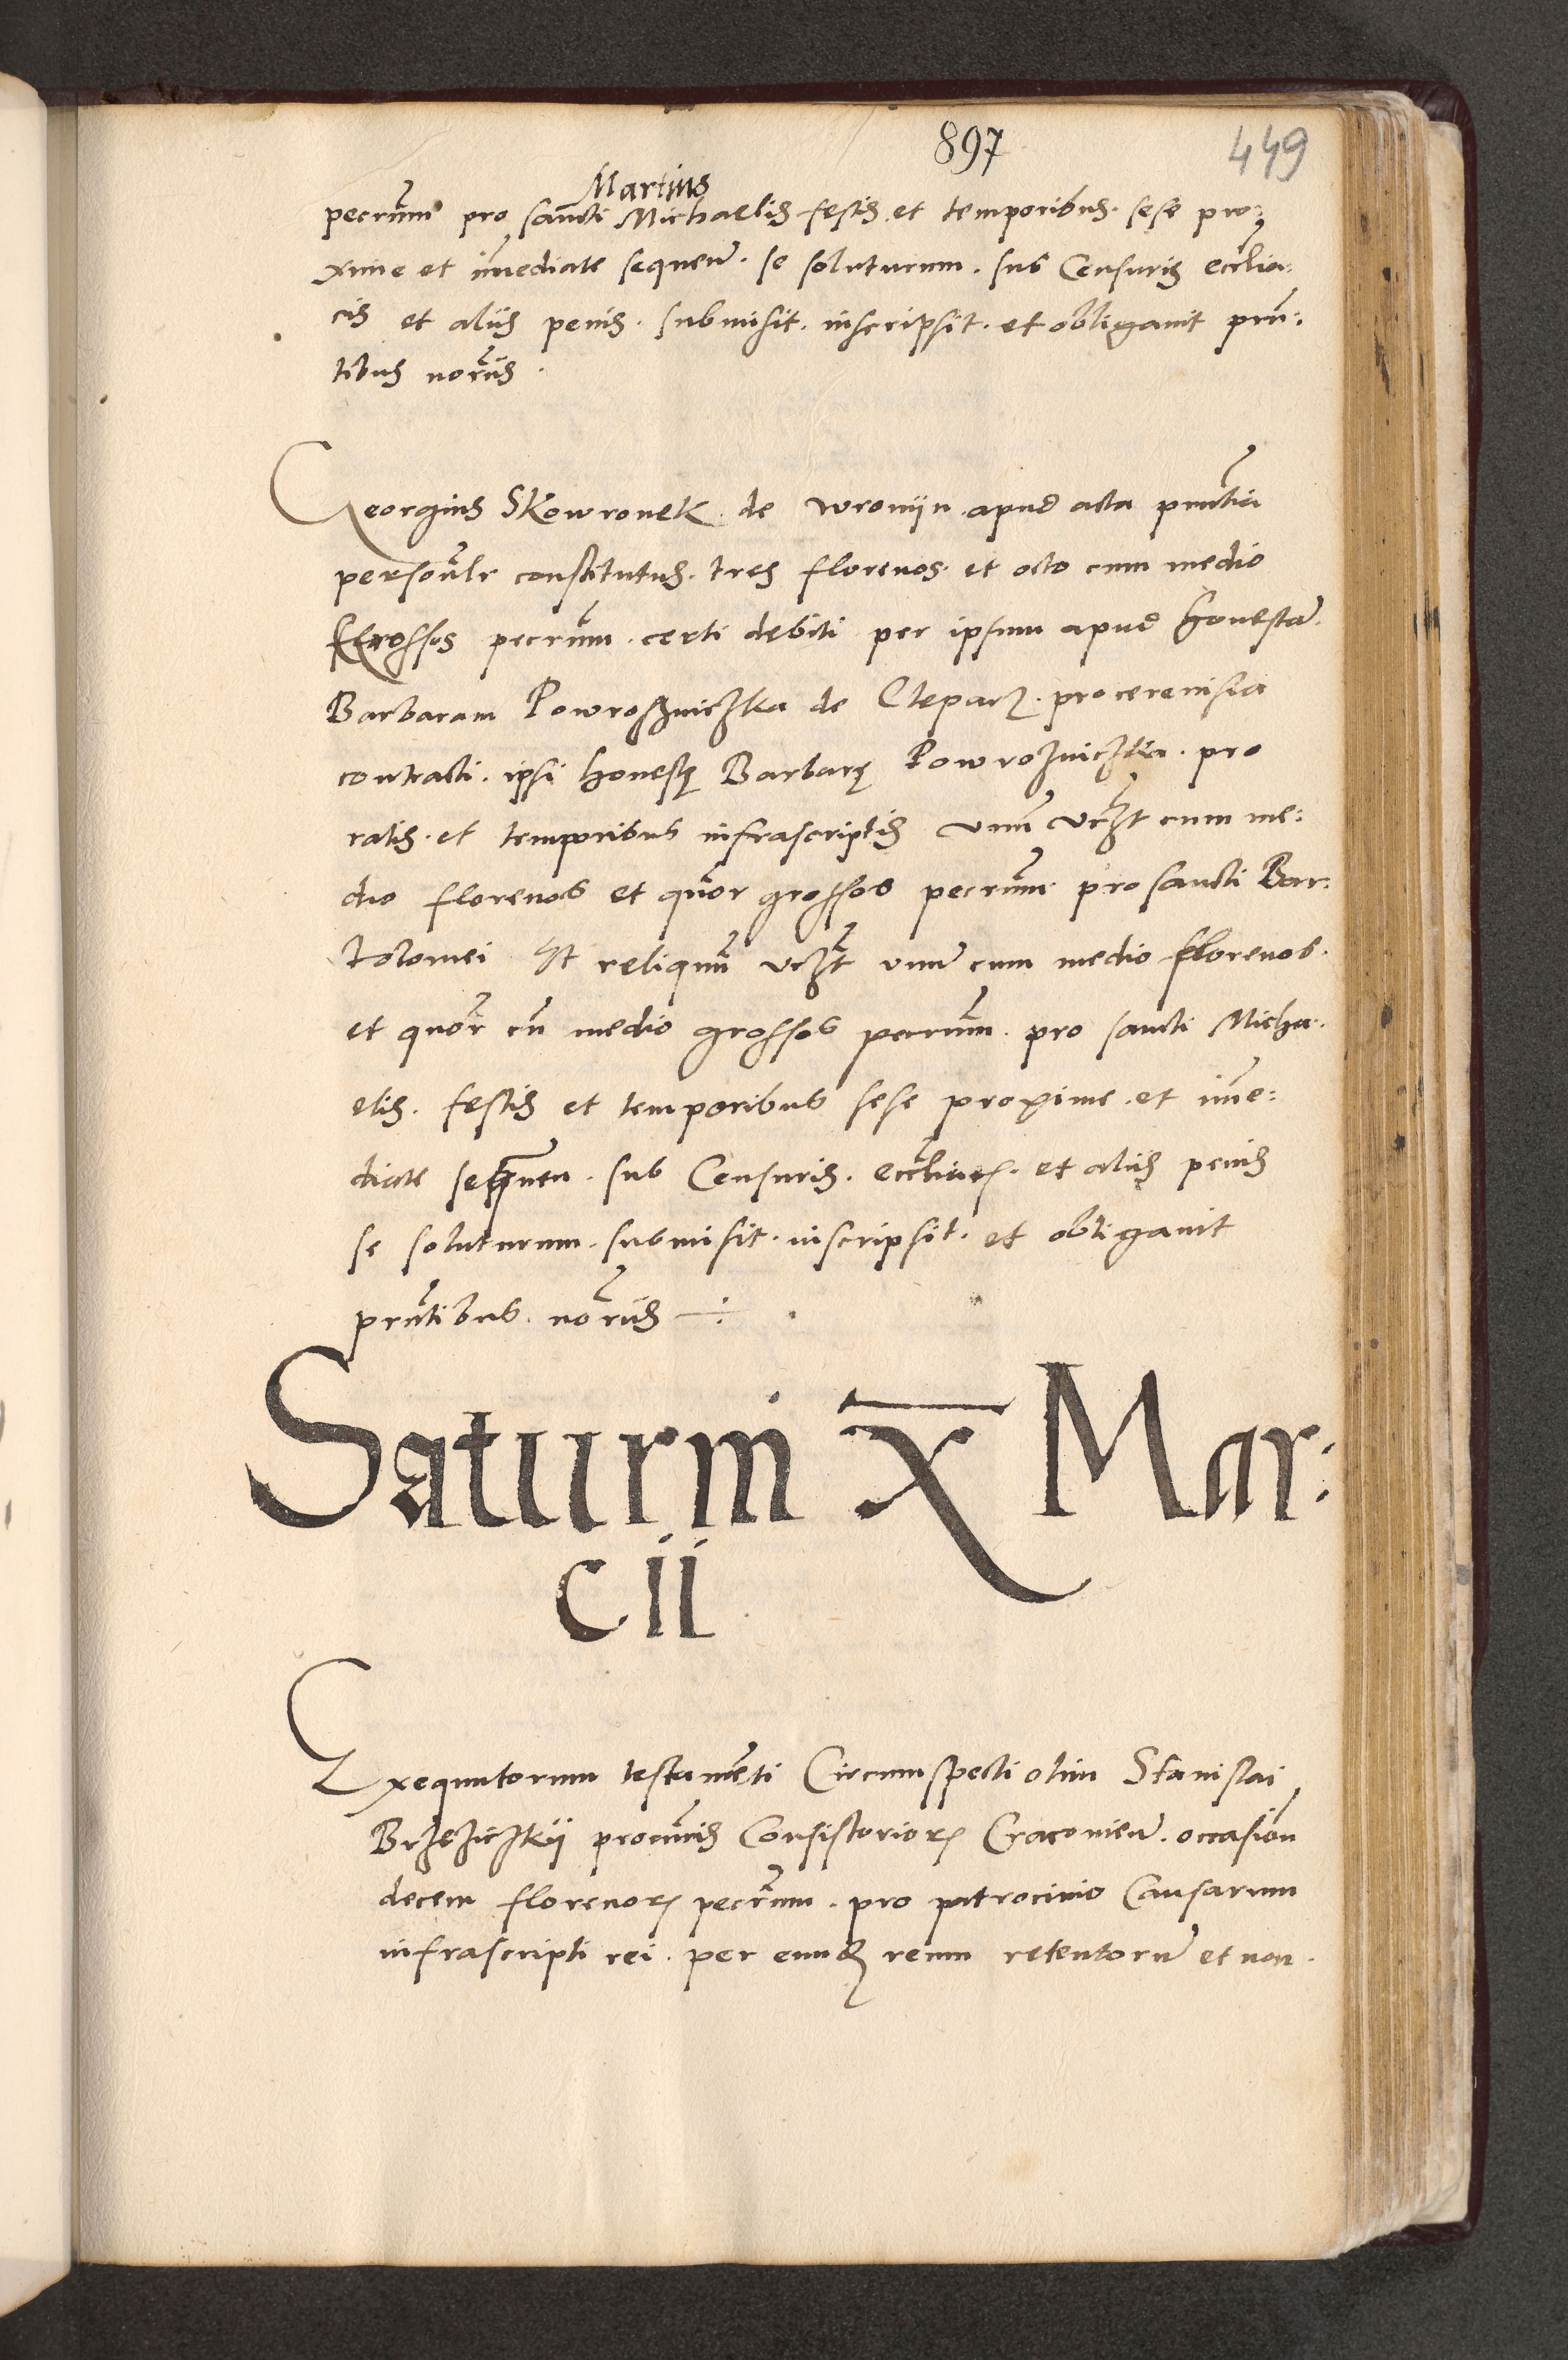 897
449
Martius
pecuniarum pro sancti Michaelis festis et temporibus sese pro:
xime et immediate sequen. se soluturum. sub Censuris ecclia:
cis et aliis penis. submisit. inscripsit. et obligavit prn:
tibus notariis.
Georgius Skowronek de wroniin apud acta prntia
personalr constitutus. tres florenos. et octo cum medio
grossos pecrum. certi debiti per ipsum apud honestam.
Barbaram Powrosniczka de Cleparz. pro cerevisia
contracti. ipsi honestę Barbarę Powrozniczka. pro
ratis. et temporibus infrascriptis unum vczt cum me:
dio florenos et quor grossos pecrum pro sancti Bar:
tolomei Et reliquum vczt unum cum medio florenos.
et quor cum medio grossos pecrum. pro sancti Micha:
elis. festis et temporibus sese proxime. et imme:
diate sequen. sub Censuris. eccliar. et aliis penis
se soluturum. submisit. inscripsit. et obligavit
prntibus. notariis
Saturni X Mar:
cii
Exequutorum testamenti Circumspecti olim Stanislai
Brzeziczkij procuris Consistorior Cracovien. occasion
decem florenor pecrum. pro patrocinio Causarum
infrascripti rei. per eundem reum retentorum et non.